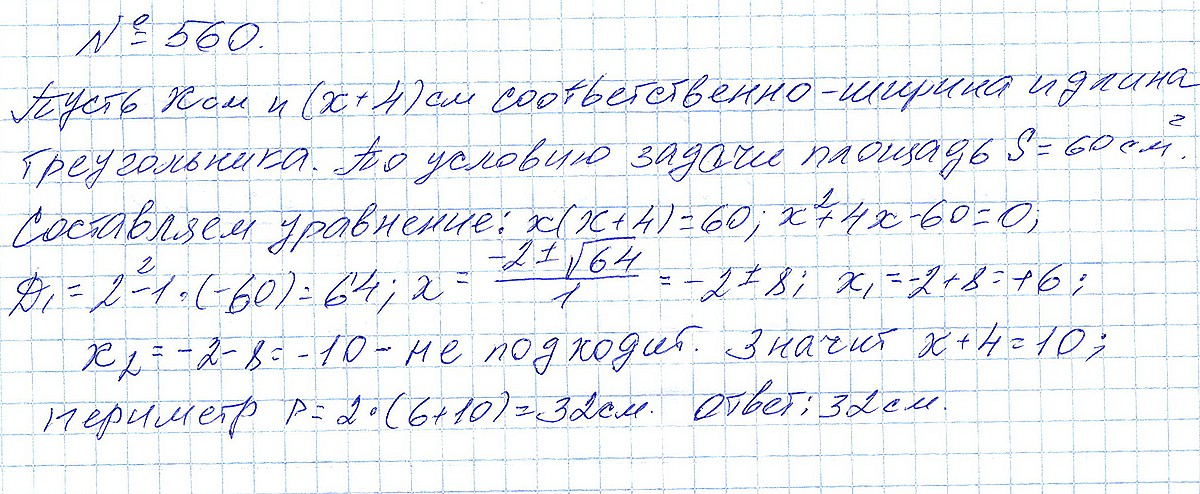 № 560.
Пусть x см и (x+4) см соответственно - ширина и длина
треугольника. По условию задачи площадь S = 60 см².
Составляем уравнение: x(x+4)=60; x²+4x-60=0;
D₁ = 2²-1·(-60)=64; x = (-2±√64)/1 = -2±8; x₁=-2+8=+6;
x₂ = -2-8=-10 - не подходит. Значит x+4=10;
периметр P=2·(6+10)=32см. Ответ: 32см.